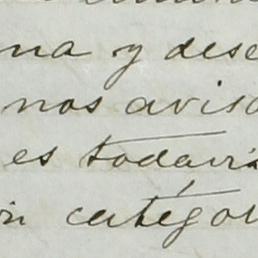 na y dese
nos aviso
es todavia
ón catégor